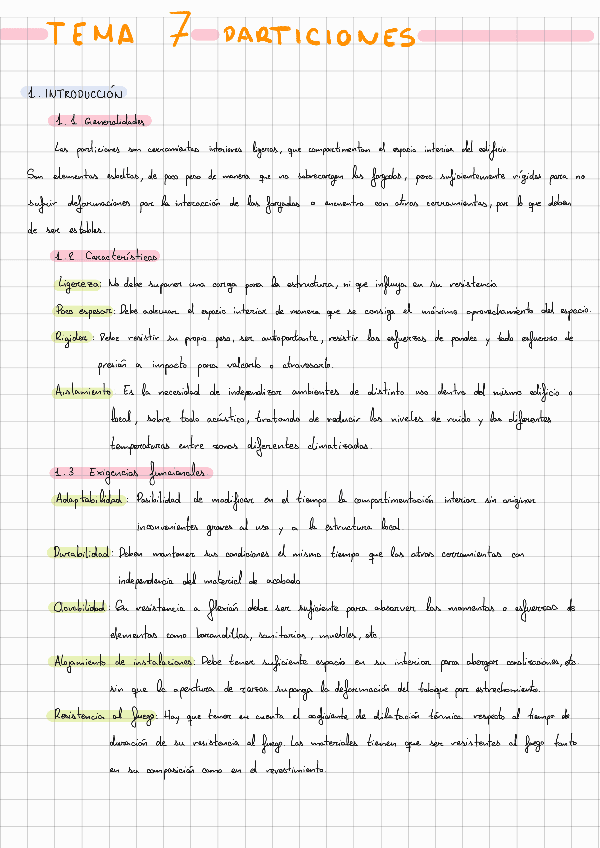 TEMA 7 PARTICIONES
1. INTRODUCCIÓN
1.1 Generalidades
Las particiones son cerramientos interiores ligeros, que compartimentan el espacio interior del edificio.
Son elementos esbeltos, de poco peso de manera que no sobrecarguen los forjados, pero suficientemente rígidos para no
sufrir deformaciones por la interacción de los forjados o encuentro con otros cerramientos, por lo que deben
de ser estables.
1.2 Características
Ligereza: No debe suponer una carga para la estructura, ni que influya en su resistencia
Poco espesor: Debe adecuar el espacio interior de manera que se consiga el máximo aprovechamiento del espacio.
Rigidez: Debe resistir su propio peso, ser autoportante, resistir los esfuerzos de pandeo y todo esfuerzo de
presión o impacto para volcarlo o atravesarlo.
Aislamiento: Es la necesidad de independizar ambientes de distinto uso dentro del mismo edificio o
local, sobre todo acústico, tratando de reducir los niveles de ruido y las diferentes
temperaturas entre zonas diferentes climatizadas.
1.3 Exigencias funcionales
Adaptabilidad: Posibilidad de modificar en el tiempo la compartimentación interior sin originar
inconvenientes graves al uso y a la estructura local
Durabilidad: Deben mantener sus condiciones el mismo tiempo que los otros cerramientos con
independencia del material de acabado
Clavabilidad: Su resistencia a flexión debe ser suficiente para absorver los momentos o esfuerzos de
elementos como barandillas, sanitarios, muebles, etc.
Alojamiento de instalaciones: Debe tener suficiente espacio en su interior para albergar canalizaciones, etc.
sin que la apertura de rozas suponga la deformación del tabique por estrechamiento.
Resistencia al fuego: Hay que tener en cuenta el coeficiente de dilatación térmica respecto al tiempo de
duración de su resistencia al fuego. Los materiales tienen que ser resistentes al fuego tanto
en su composición como en el revestimiento.